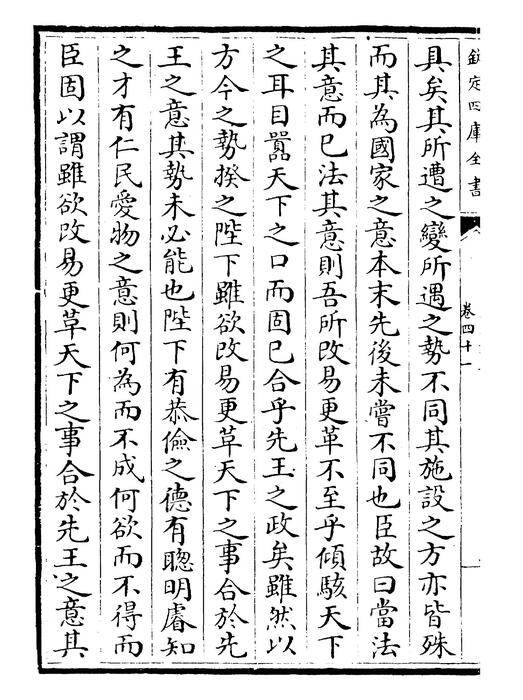 欽定四庫全書
卷四十一
具矣其所遭之變所遇之勢不同其施設之方亦皆殊
而其為國家之意本末先後未嘗不同也臣故曰當法
其意而已法其意則吾所改易更革不至乎傾駭天下
之耳目囂天下之口而固已合乎先王之政矣雖然以
方今之勢揆之陛下雖欲改易更革天下之事合於先
王之意其勢未必能也陛下有恭儉之德有聰明睿知
之才有仁民愛物之意則何為而不成何欲而不得而
臣固以謂雖欲改易更革天下之事合於先王之意其